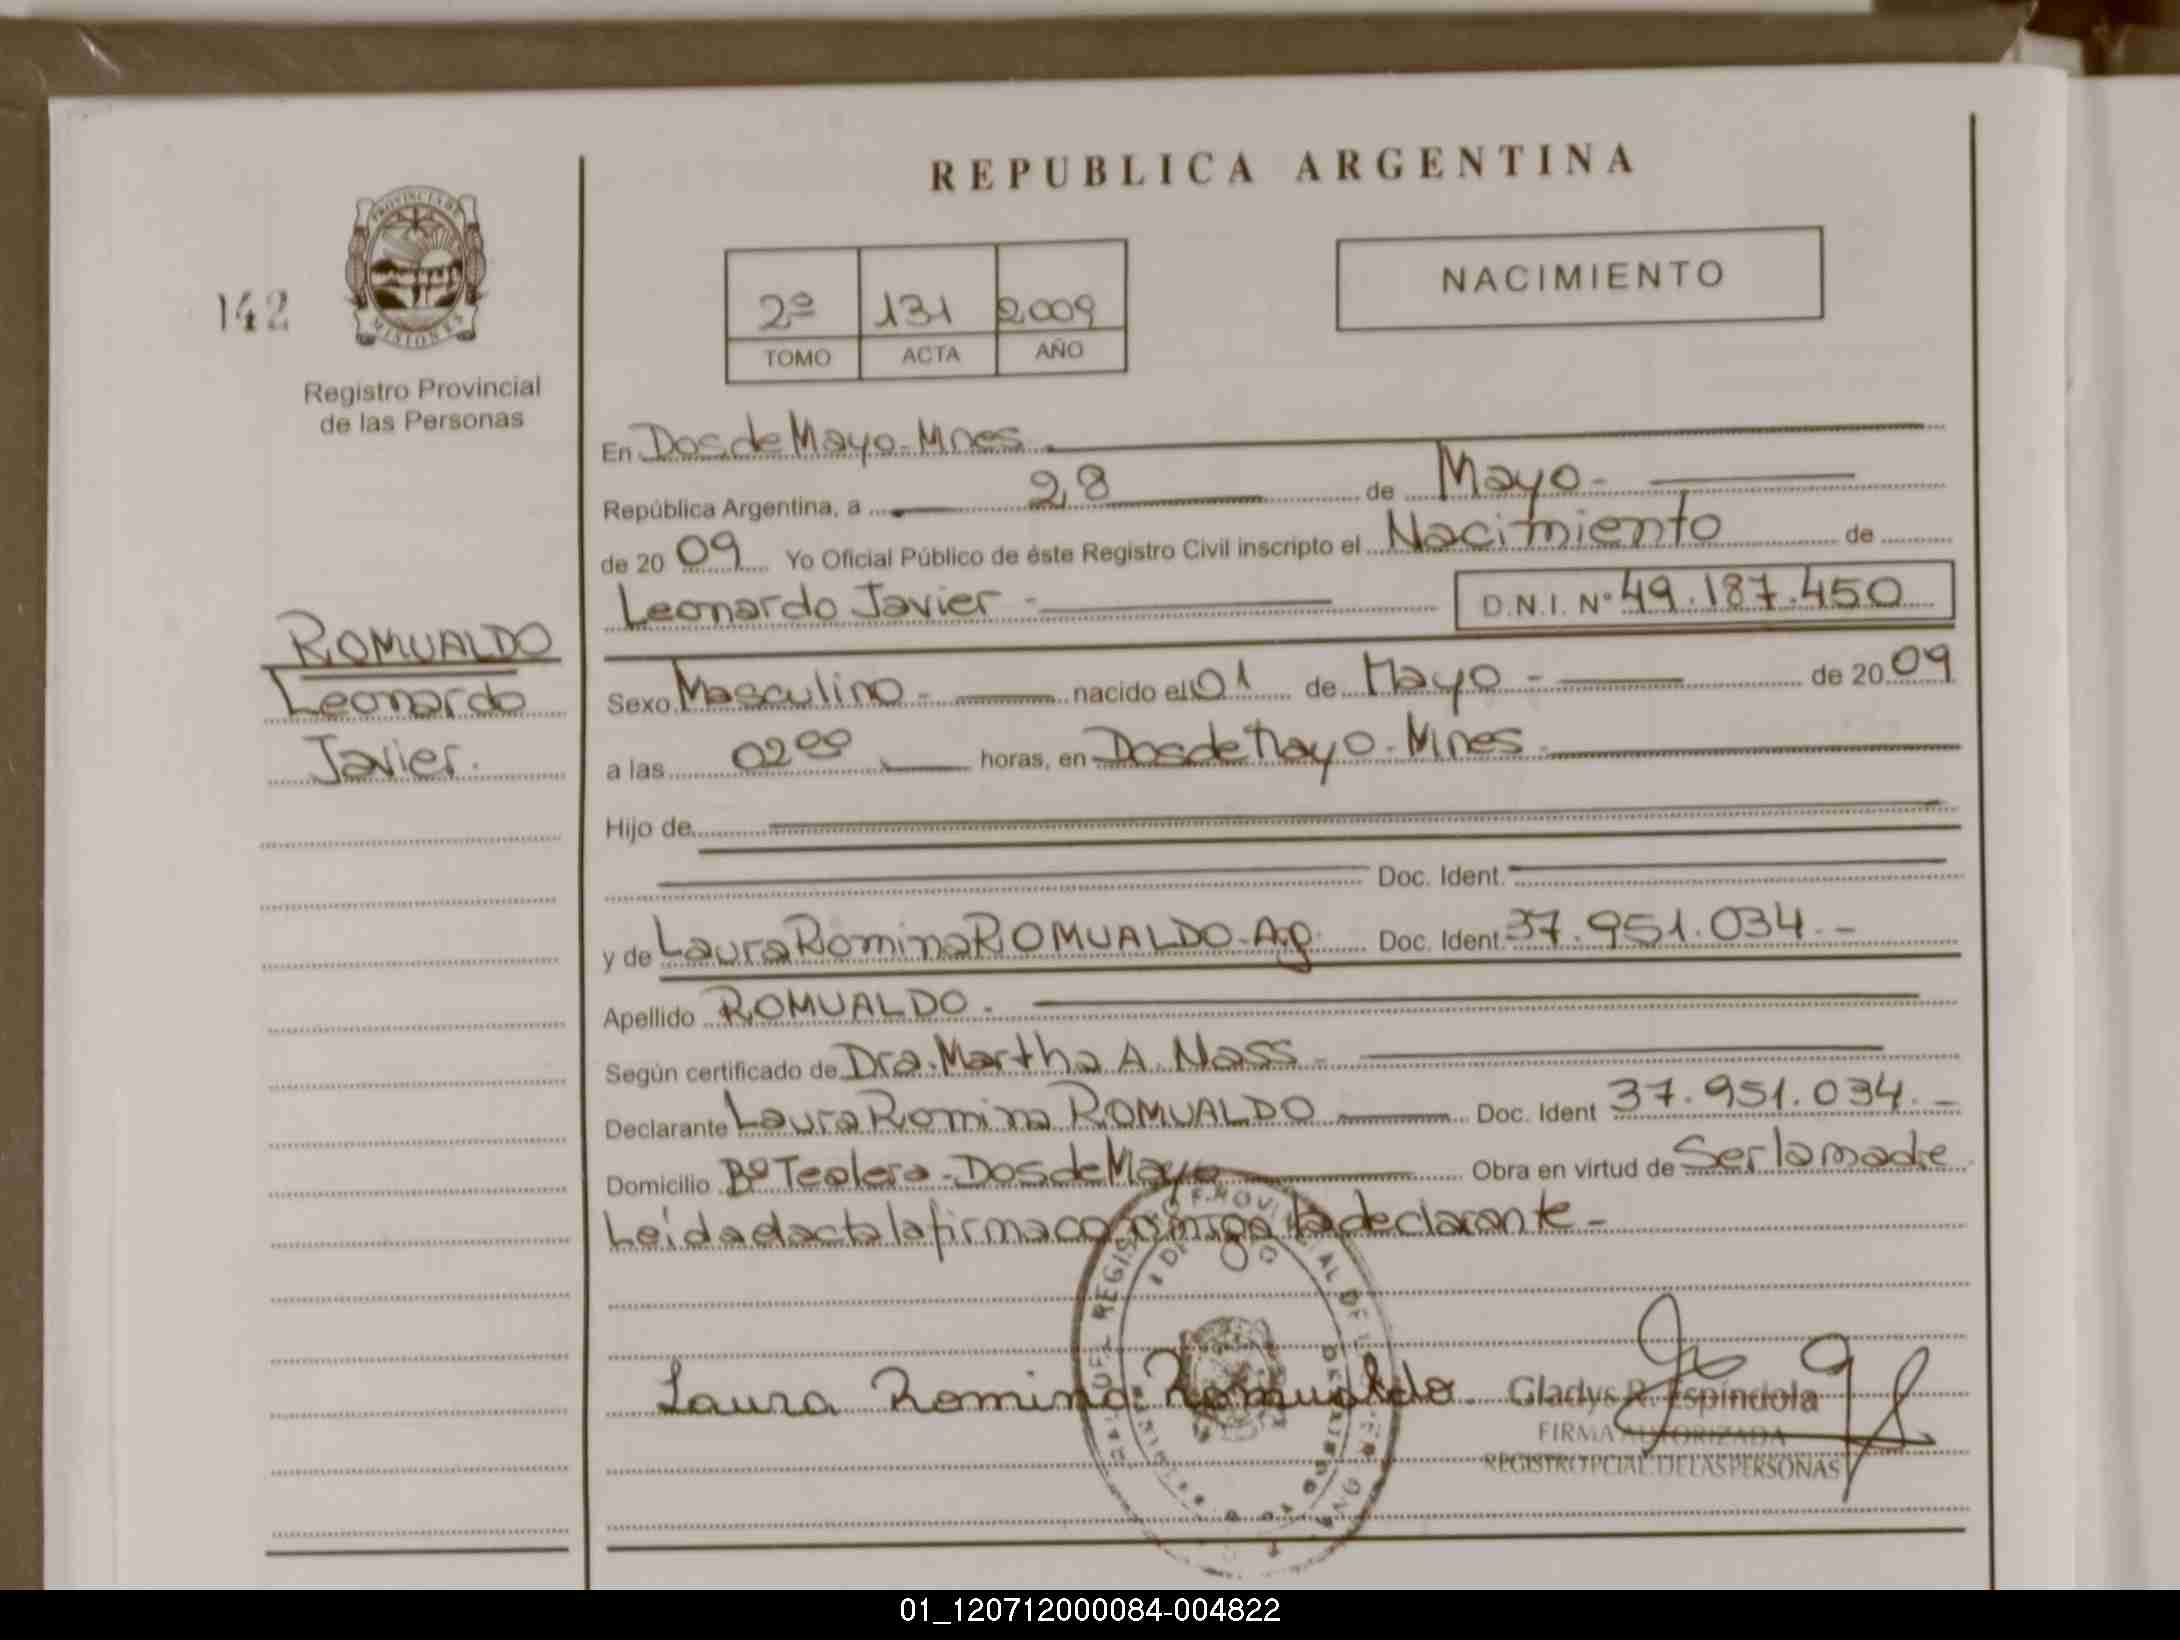 REPUBLICA ARGENTINA
142
PROVINCIA DE
MISIONES
Registro Provincial
de las Personas
2º 131 2009
TOMO ACTA AÑO
NACIMIENTO
En Dos de Mayo - Mnes.
República Argentina, a 28 de Mayo -
de 20 09 Yo Oficial Público de éste Registro Civil inscripto el Nacimiento de
Leonardo Javier - D.N.I. Nº 49.187.450
ROMUALDO
Leonardo
Javier.
Sexo Masculino - nacido el 01 de Mayo - de 20 09
a las 02 00 horas, en Dos de Mayo - Mnes -
Hijo de
Doc. Ident.
y de Laura Romina ROMUALDO - Ag. Doc. Ident. 37.951.034.-
Apellido ROMUALDO.
Según certificado de Dra. Martha A. Nass -
Declarante Laura Romina ROMUALDO Doc. Ident 37.951.034.-
Domicilio Bº Tealera - Dos de Mayo Obra en virtud de Ser la madre
Leída el acta la firma conmigo la declarante -
Laura Romina Romualdo.
Gladys R. Espíndola
FIRMA AUTORIZADA
REGISTRO PCIAL. DE LAS PERSONAS
01_120712000084-004822